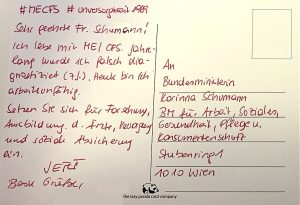 #MECFS #unversorgtseit1969
Sehr geehrte Fr. Schumann!
Ich lebe mit ME/CFS. Jahre-
lang wurde ich falsch dia-
gnostiziert (). Heute bin ich
arbeitsunfähig.
Setzen Sie sich für Forschung,
Ausbildung d. Ärzte, Versorgung
und soziale Absicherung
ein.
JETZT
Beste Grüße
An
Bundesministerin
Korinna Schumann
BM für Arbeit, Soziales,
Gesundheit, Pflege u.
Konsumentenschutz
Stubenring 1
1010 Wien
the lazy panda card company